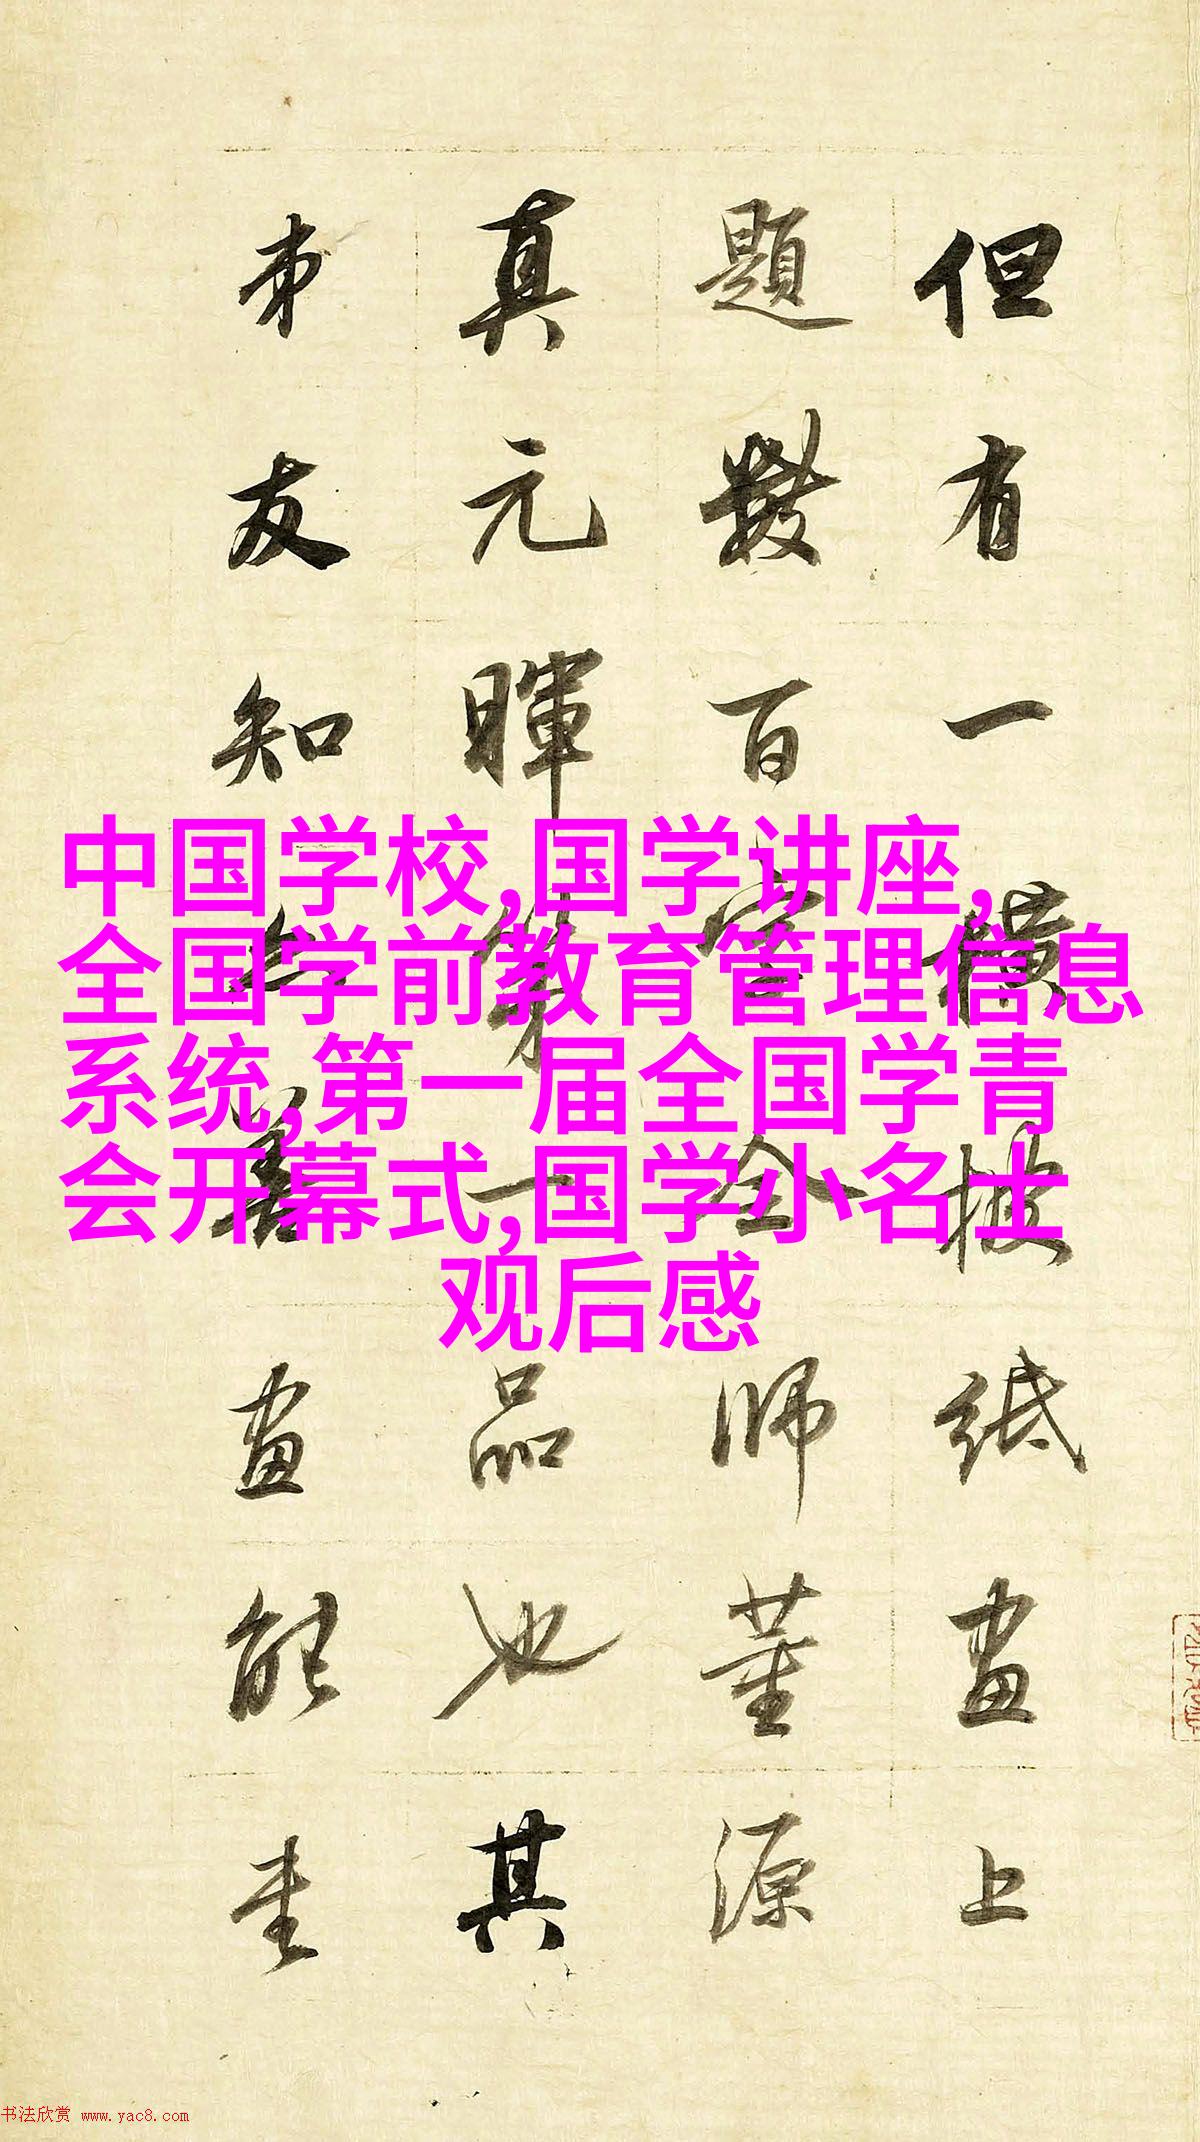 但有一橫披紙畫上
題數百全師董源
真元暉第一品也其
弟友知善畫能
中国学校,国学讲座,
全国学前教育管理信息
系统,第一届全国学青
会开幕式,国学小名士
观后感
书法欣赏 www.yac8.com